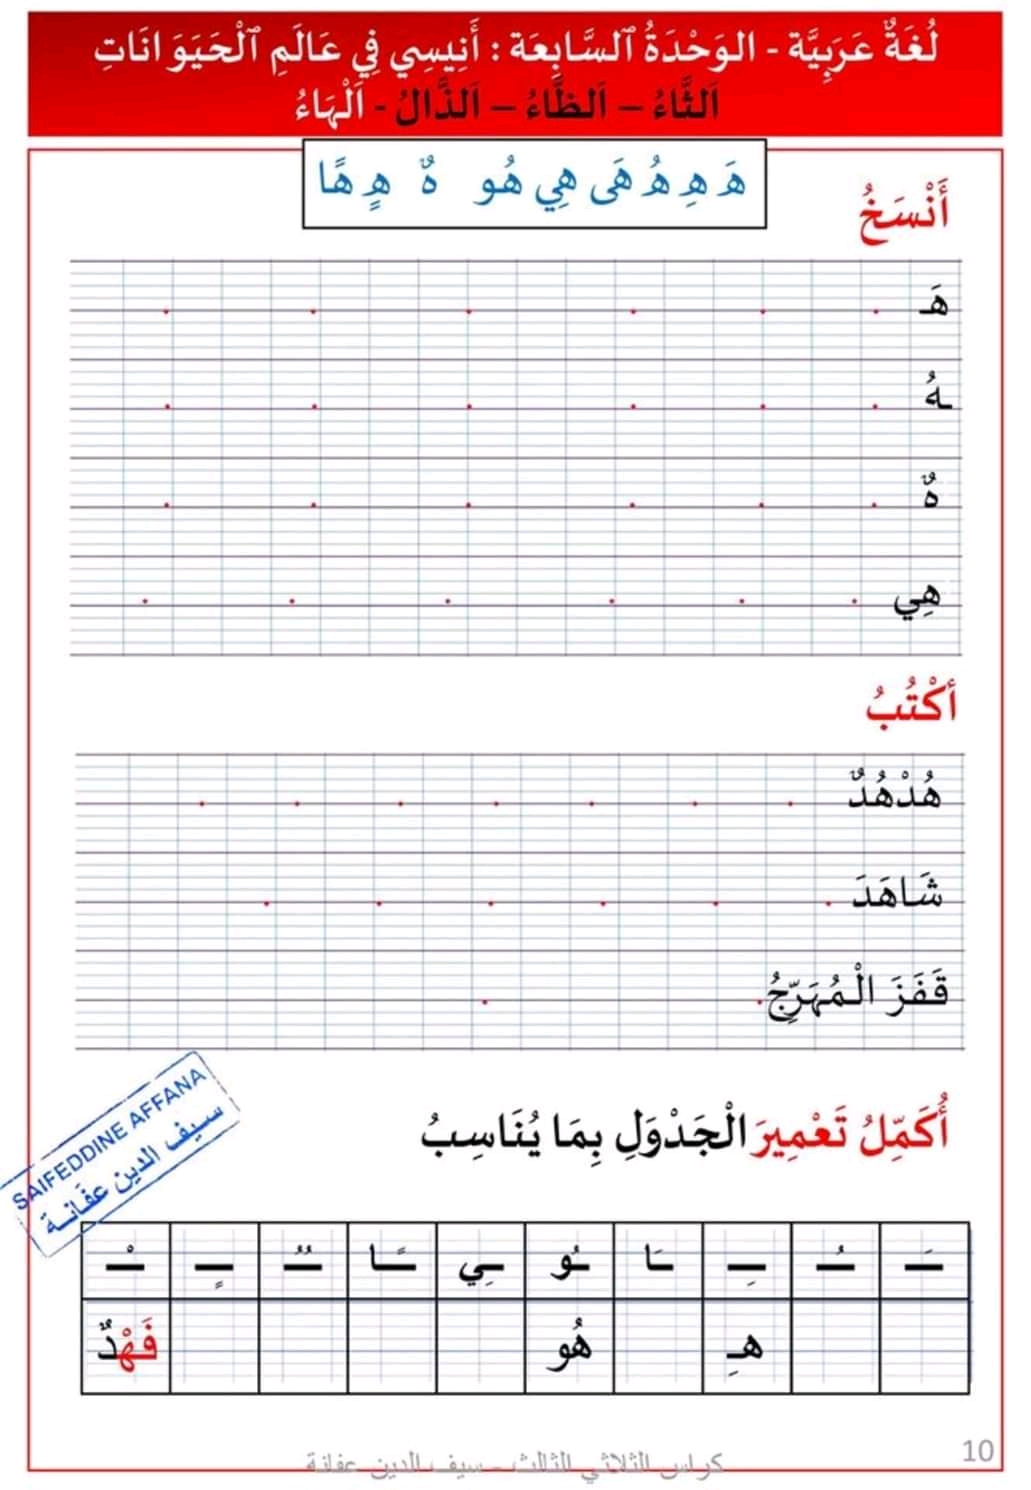 لُغَةٌ عَرَبِيَّة - الوَحْدَةُ ٱلسَّابِعَة : أَنِيسِي فِي عَالَمِ ٱلْحَيَوَانَاتِ
اَلثَّاءُ – اَلظَّاءُ – اَلذَّالُ - اَلْهَاءُ
هَـ هِـ هُـ هَى هِي هُو هٌ هٍ هًا
أَنْسَخُ
هَـ
ـهُ
هٌ
هِي
أكْتُبُ
هُدْهُدٌ
شَاهَدَ
قَفَزَ الْمُهَرِّجُ
SAIFEDDINE AFFANA
سيف الدين عفانة
أُكَمِّلُ تَعْمِيرَ الْجَدْوَلِ بِمَا يُنَاسِبُ
ـَ ـُ ـِ ـَا ـُو ـِي ـًا ـٌ ـٍ ـْ
هِـ هُو فَهْدٌ
كراس الثلاثي الثالث - سيف الدين عفانة
10